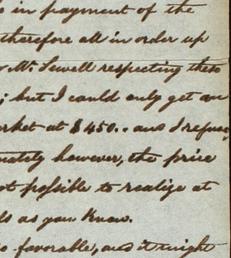 in payment of the
therefore all in order up
Mr. Sewell respecting these
; but I could only get an
at $450.. and I refuse
however, the price
possible to realize at
as you know.
favorable, and it might